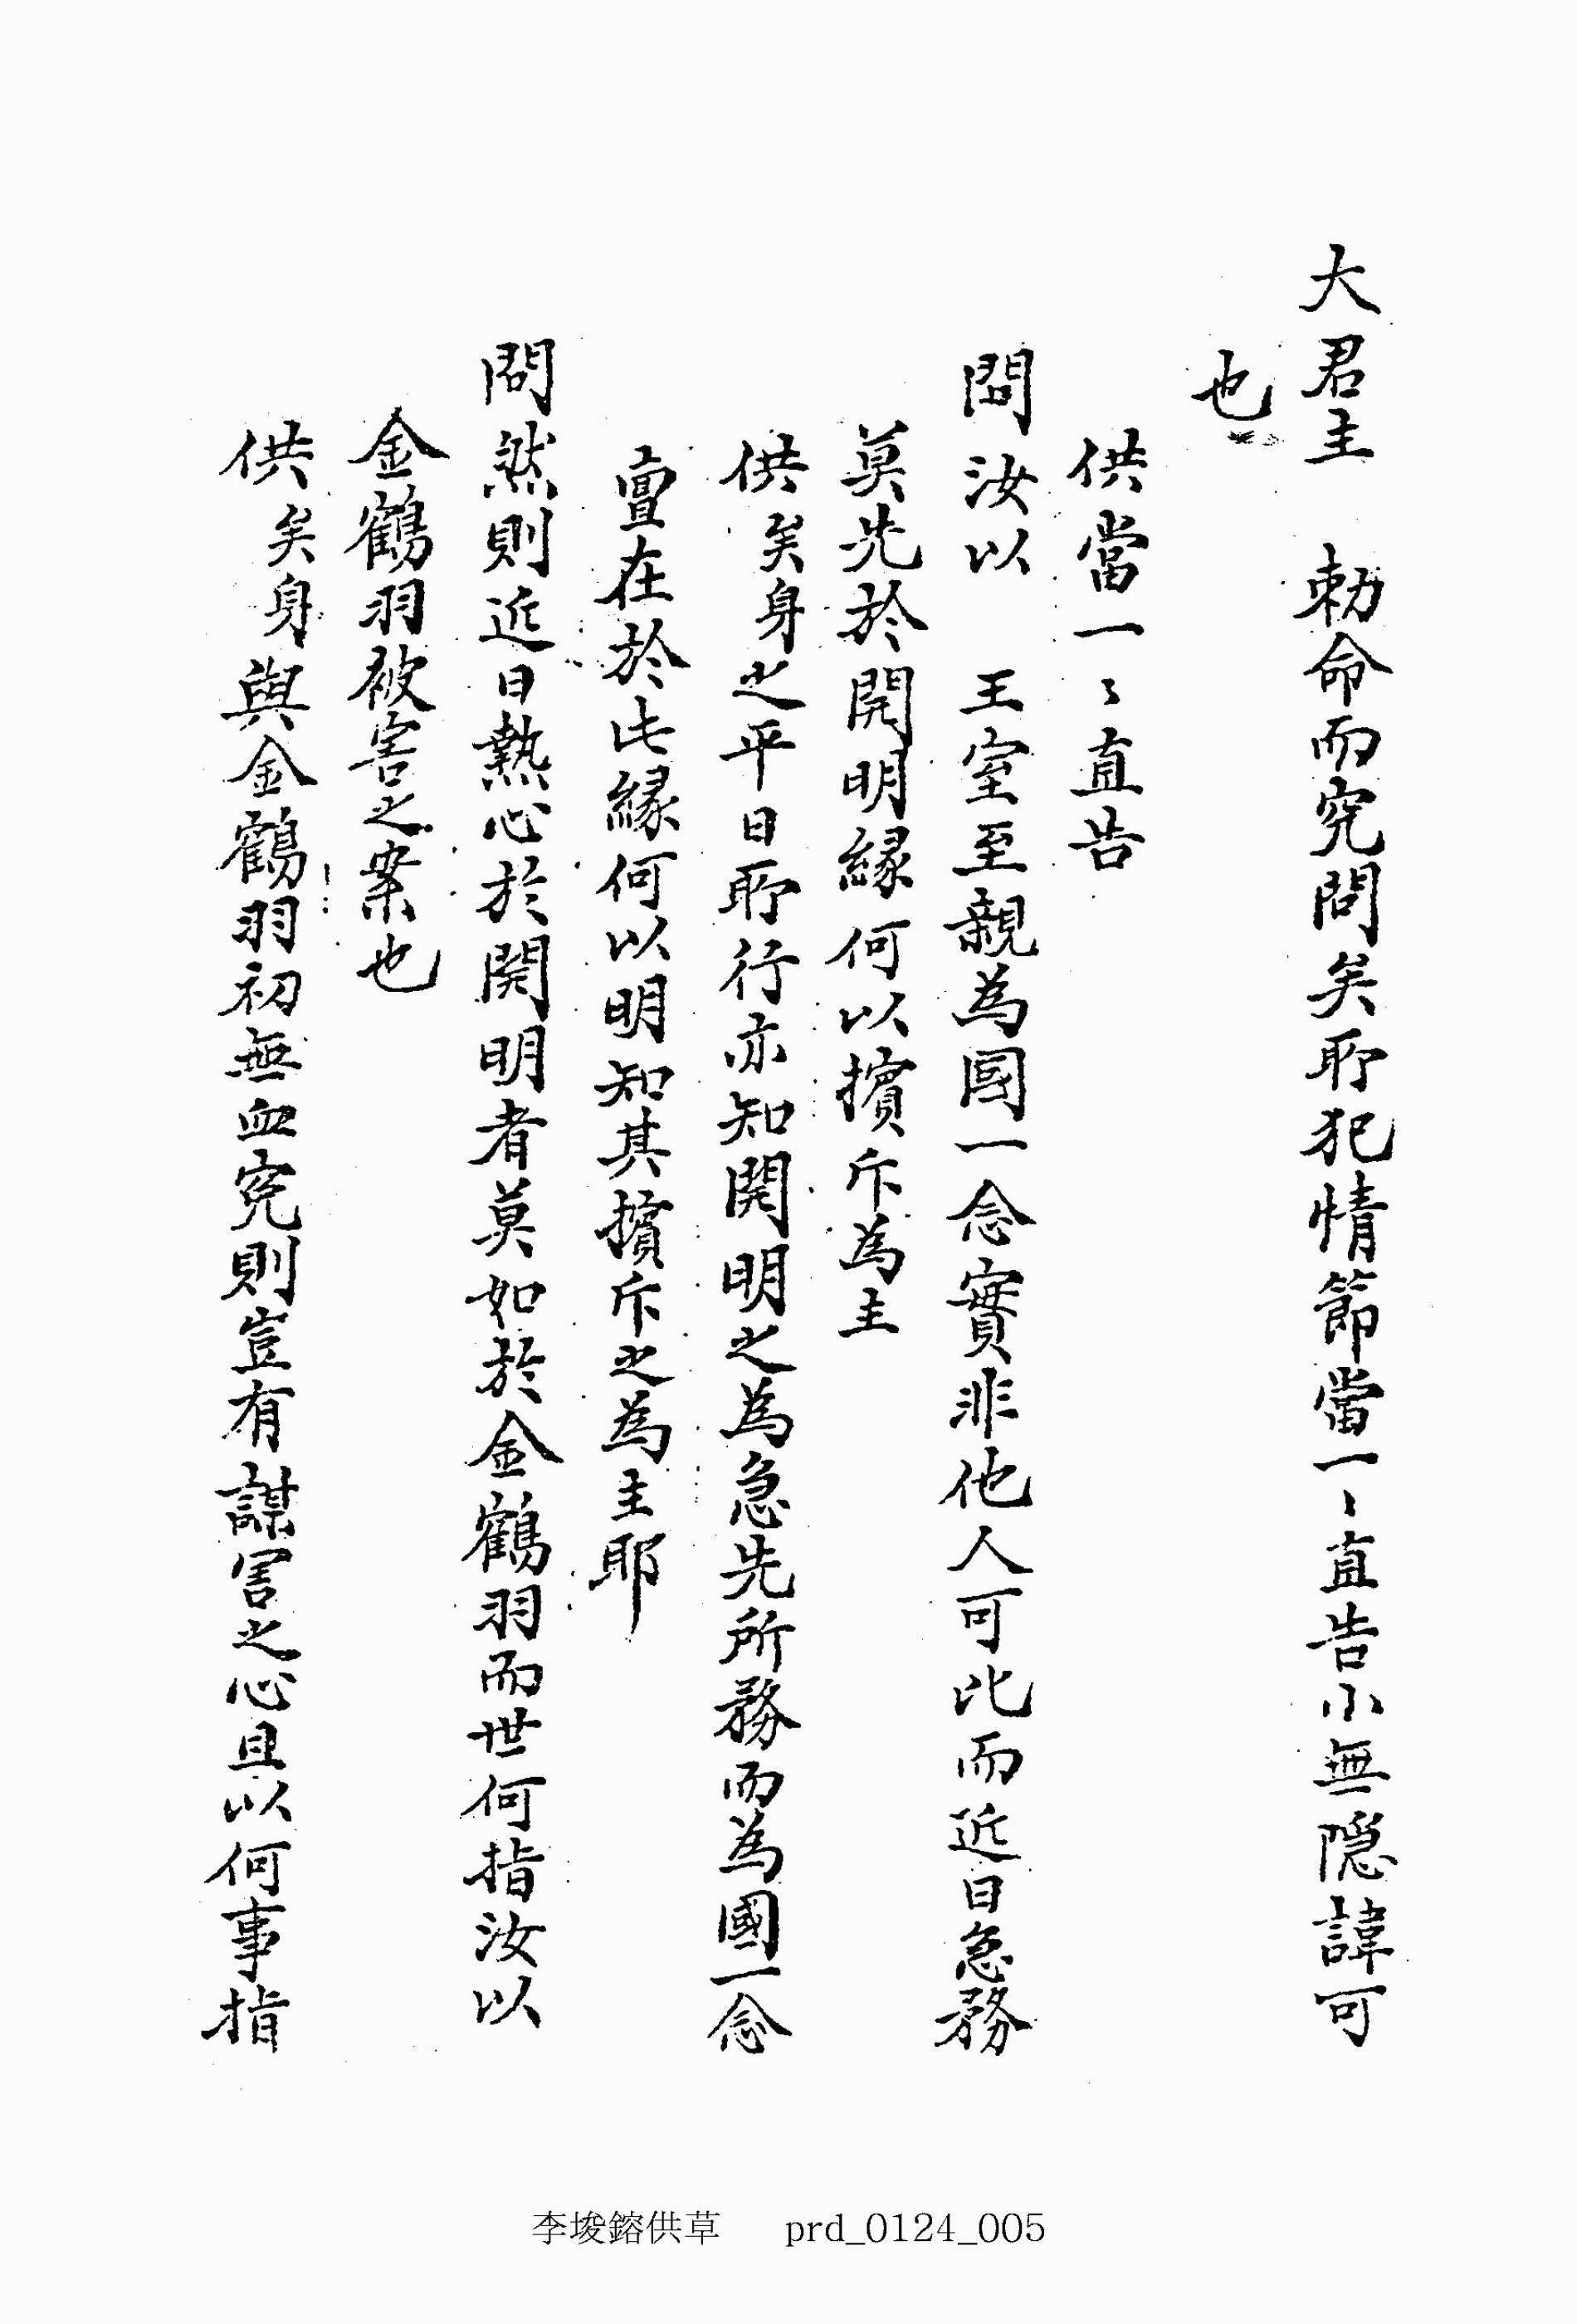 大君主 勅命而究問矣所犯情節當一〻直告小無隱諱可
也
供當一〻直告
問汝以 王室至親為國一念實非他人可比而近日急務
莫先於開明緣何以擯斥為主
供矣身之平日所行亦知開明之為急先所務而為國一念
亶在於此緣何以明知其擯斥之為主耶
問然則近日熱心於開明者莫如於金鶴羽而世何指汝以
金鶴羽被害之案也
供矣身與金鶴羽初無血寃則豈有謀害之心且以何事指
李埈鎔供草 prd_0124_005